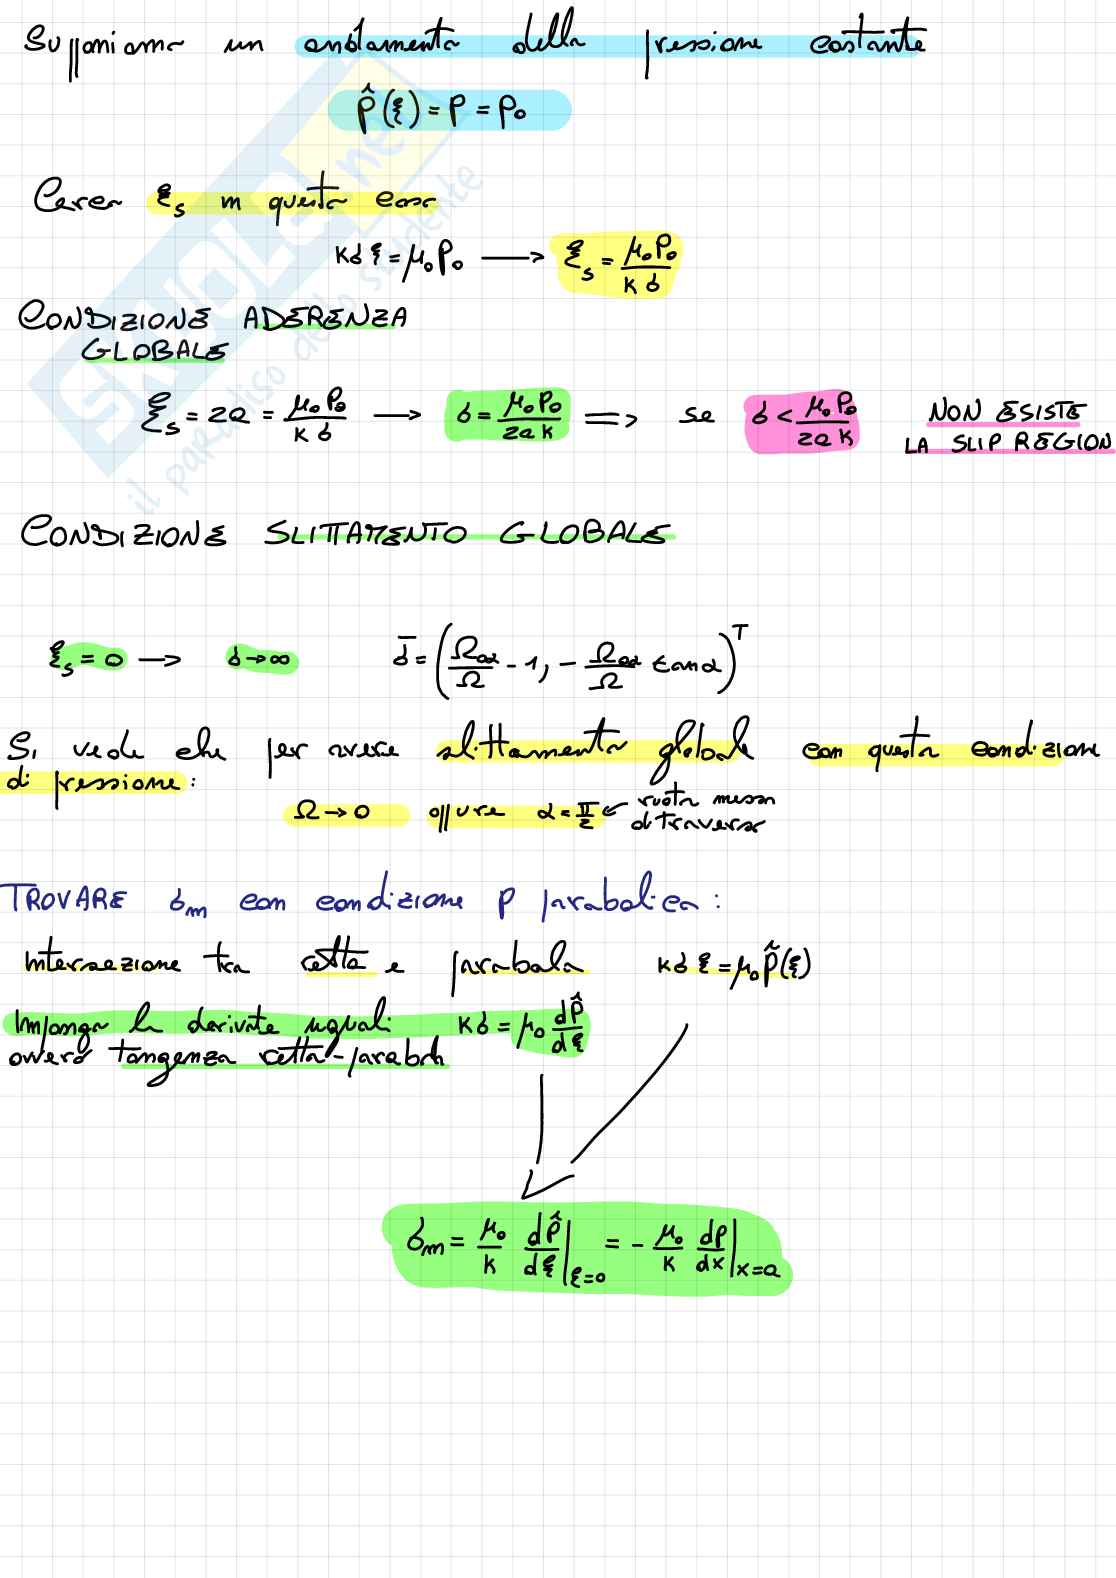 Supponiamo un andamento della pressione costante
p̂(ξ) = p = p₀
Cerco ξₛ in questo caso
kσξ = μ₀p₀ → ξₛ = μ₀p₀ / kσ
CONDIZIONE ADERENZA
GLOBALE
ξₛ = 2a = μ₀p₀ / kσ → σ = μ₀p₀ / 2ak => se σ < μ₀p₀ / 2ak NON ESISTE
LA SLIP REGION
CONDIZIONE SLITTAMENTO GLOBALE
ξₛ = 0 → σ → ∞ σ̄ = (Ω₀α/Ω - 1, - Ω₀α/Ω tanα)ᵀ
Si vede che per avere slittamento globale con questa condizione
di pressione:
Ω → 0 oppure α = π/2 ← ruota messa
di traverso
TROVARE σₘ con condizione p parabolica:
Intersezione tra retta e parabola kσξ = μ₀p̂(ξ)
Impongo le derivate uguali kσ = μ₀ dp̂/dξ
ovvero tangenza retta-parabola
σₘ = μ₀/k dp̂/dξ |ξ=0 = - μ₀/k dp/dx |x=a
SKUOLA.net
il paradiso dello studente